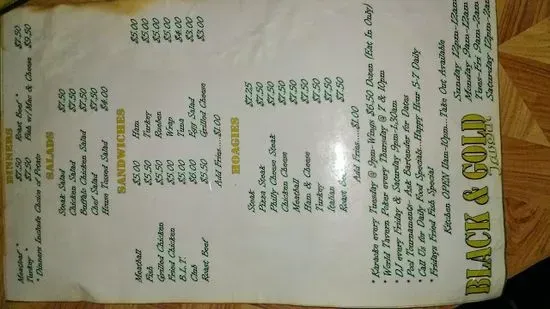 DINNERS
Meatloaf * $7.50 Roast Beef * $7.50
Turkey * $7.50 Fish w/Mac & Cheese $9.50
* Dinners Include Choice of Potato
SALADS
Steak Salad $7.50
Chicken Salad $7.50
Buffalo Chicken Salad $7.50
Chef Salad $7.50
House Tossed Salad $4.00
SANDWICHES
Meatball $5.00 Ham $5.00
Fish $5.50 Turkey $5.00
Grilled Chicken $5.50 Reuben $5.00
Fried Chicken $5.00 Wings $5.00
B.L.T. $5.00 Tuna $4.00
Club $5.50 Egg Salad $3.00
Roast Beef $5.50 Grilled Cheese $3.00
Add Fries.....$1.00
HOAGIES
Steak $7.25
Pizza Steak $7.50
Philly Cheese Steak $7.50
Chicken Cheese $7.50
Meatball $7.50
Ham & Cheese $7.50
Turkey $7.50
Italian $7.50
Roast Beef $7.50
Add Fries.....$1.00
* Karaoke every Tuesday @ 9pm-Wings $6.50 Dozen (Eat In Only)
* World Tavern Poker every Thursday @ 7 & 10pm
* DJ every Friday & Saturday 9pm-1:30am
* Pool Tournaments- Ask Bartender for Dates
* Call Us for Daily Food Specials...Happy Hour 5-7 Daily
* Fridays Fried Fish Special
Kitchen OPEN 11am-10pm...Take Out Available
BLACK & GOLD
Tavern
Sunday 12pm-12am
Monday 9am-12am
Tues-Fri 9am-2am
Saturday 12pm-2am